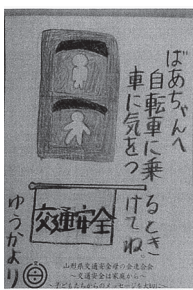 ばあちゃんへ
自転車に乗るとき
車に気をつけてね
交通安全
ゆうかより
山形県交通安全母の会連合会
～交通安全は家庭から～
～子どもたちからのメッセージを大切に～